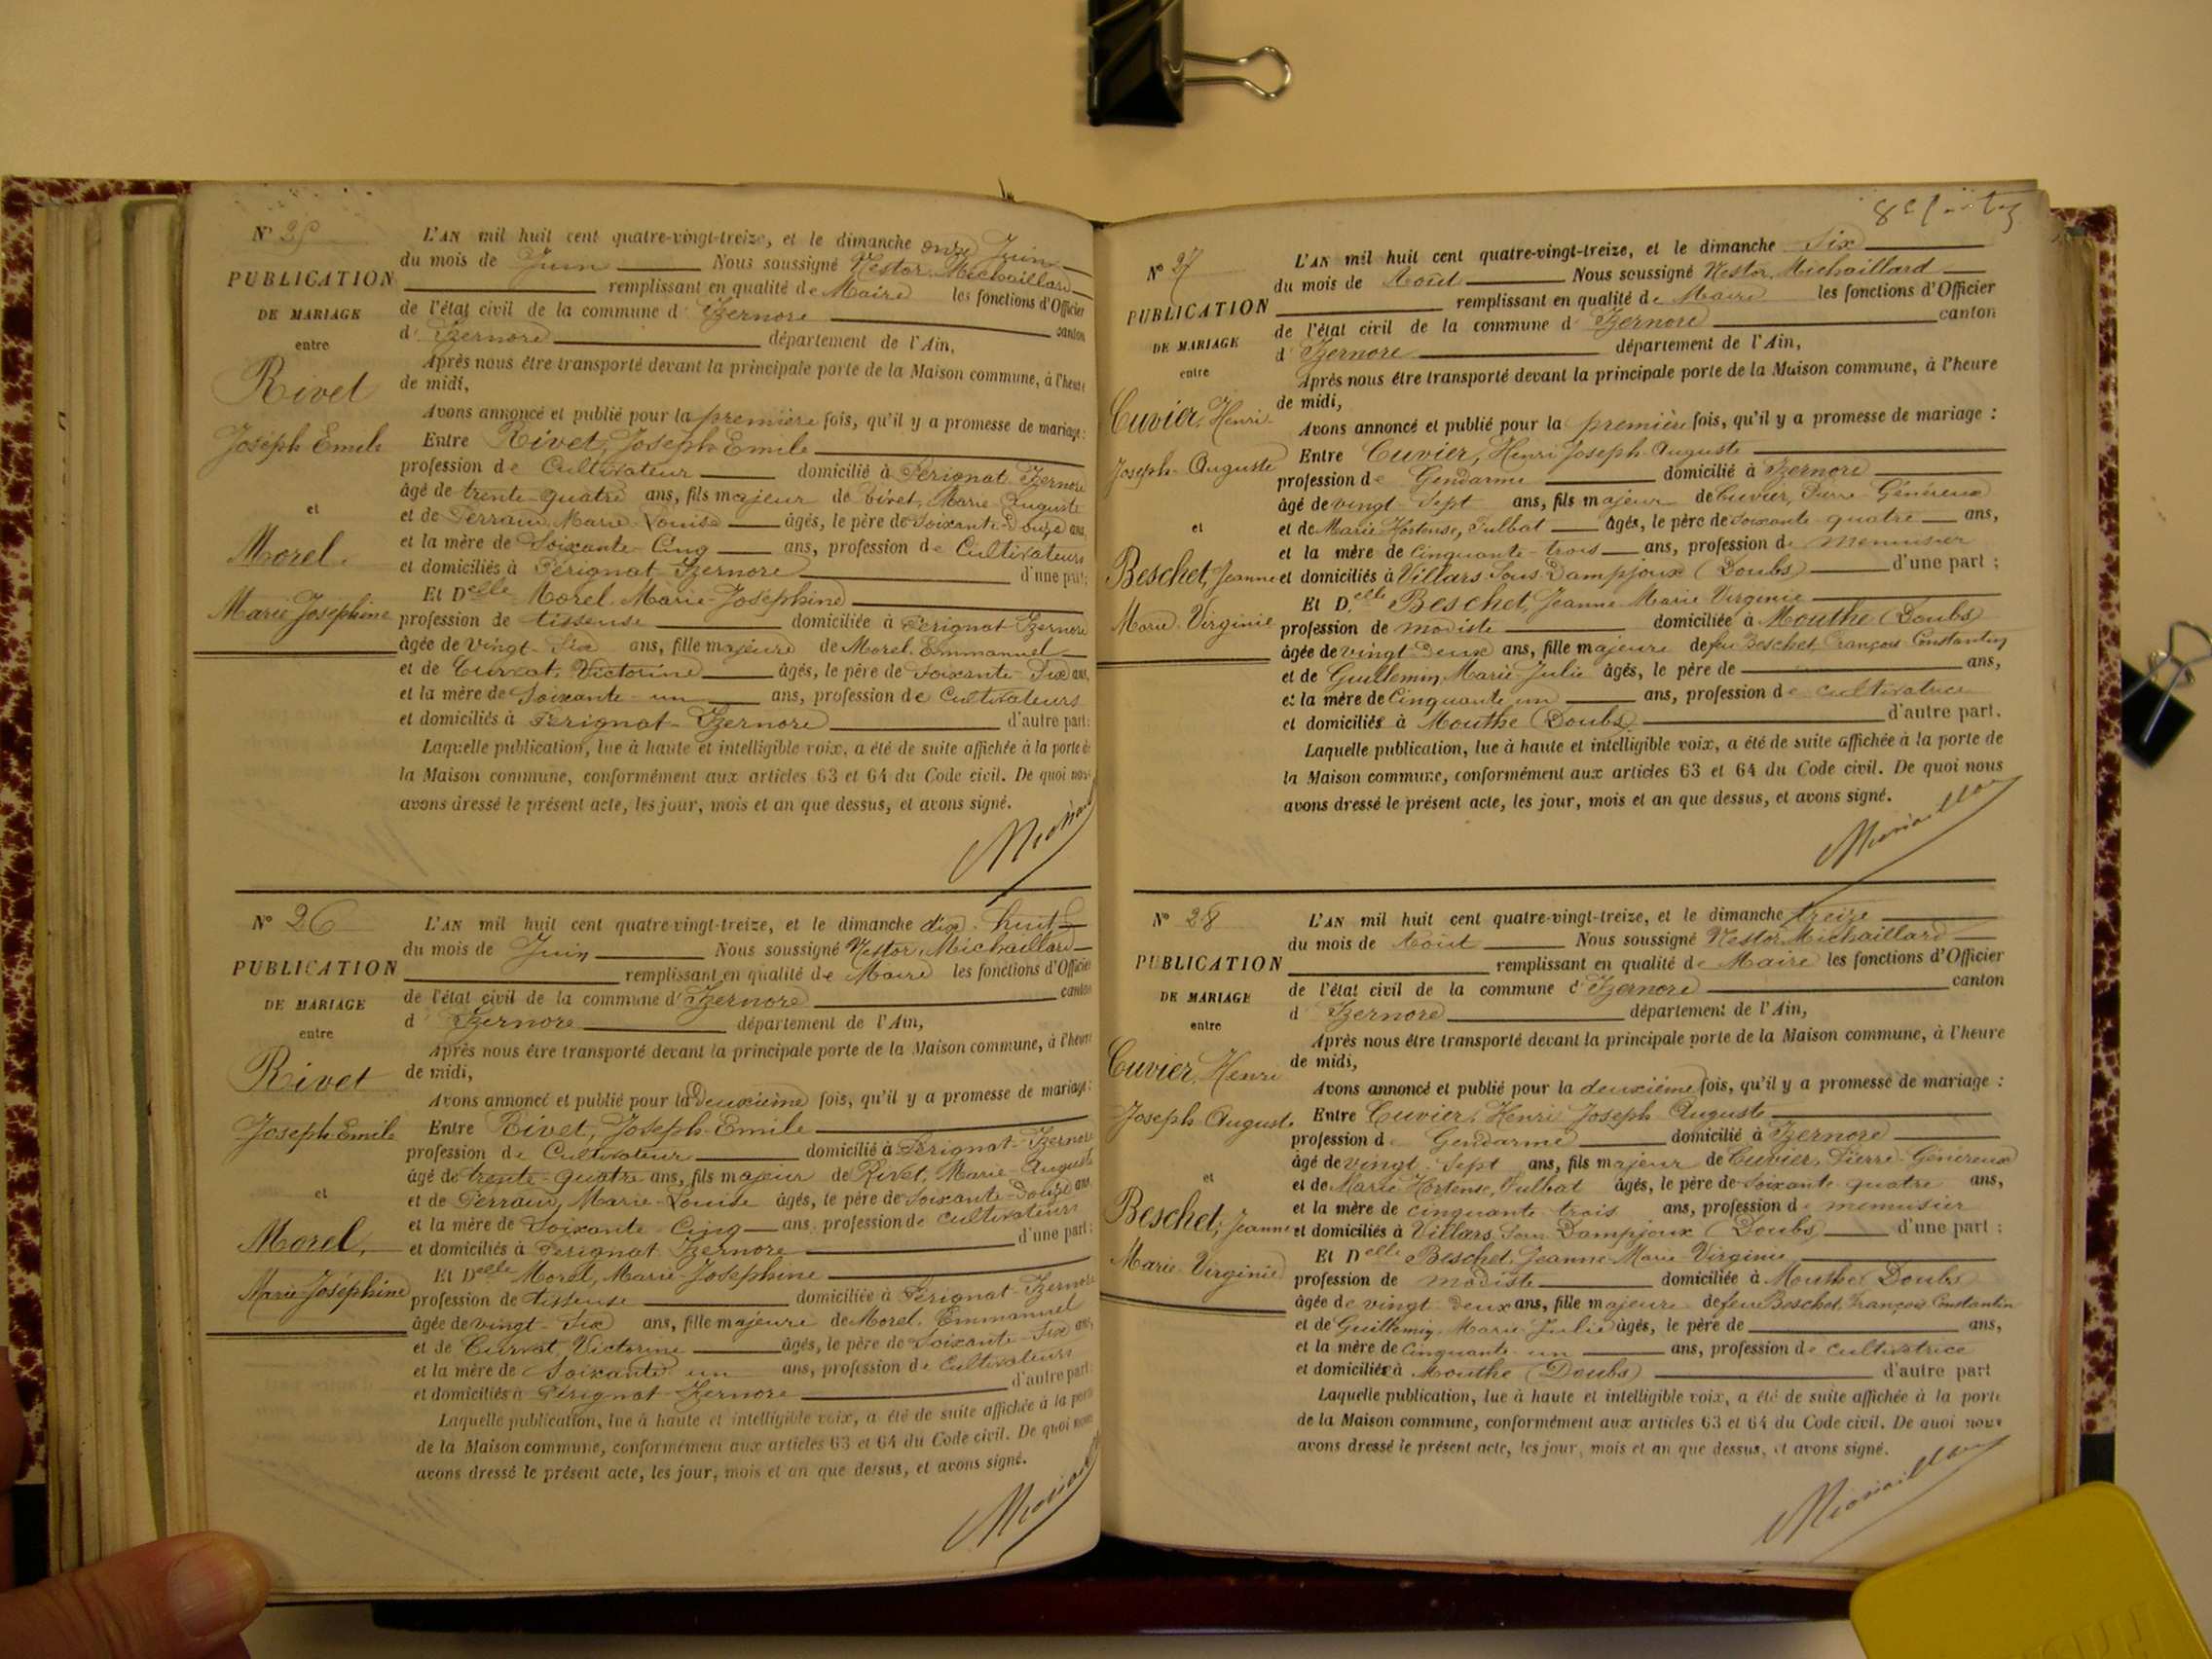 N° 25
PUBLICATION
DE MARIAGE
entre
Rivet
Joseph Emile
et
Morel
Marie Joséphine
L'AN mil huit cent quatre-vingt-treize, et le dimanche onze Juin
du mois de Juin Nous soussigné Nestor Michaillard
remplissant en qualité de Maire les fonctions d'Officier
de l'état civil de la commune d'Izernore canton
d'Izernore département de l'Ain,
Après nous être transporté devant la principale porte de la Maison commune, à l'heure
de midi,
Avons annoncé et publié pour la première fois, qu'il y a promesse de mariage :
Entre Rivet, Joseph Emile
profession de Cultivateur domicilié à Pérignat Izernore
âgé de trente-quatre ans, fils majeur de Rivet, Marie Auguste
et de Perraud, Marie Louise âgés, le père de Soixante-Douze ans,
et la mère de Soixante-Cinq ans, profession de Cultivateurs
et domiciliés à Pérignat-Izernore d'une part;
Et Delle Morel Marie-Joséphine
profession de tisseuse domiciliée à Pérignat-Izernore
âgée de vingt-Six ans, fille majeure de Morel Emmanuel
et de Curvat, Victorine âgés, le père de Soixante-Six ans,
et la mère de Soixante-un ans, profession de Cultivateurs
et domiciliés à Pérignat-Izernore d'autre part:
Laquelle publication, lue à haute et intelligible voix, a été de suite affichée à la porte de
la Maison commune, conformément aux articles 63 et 64 du Code civil. De quoi nous
avons dressé le présent acte, les jour, mois et an que dessus, et avons signé.
N° 26
PUBLICATION
DE MARIAGE
entre
Rivet
Joseph Emile
et
Morel,
Marie-Joséphine
L'AN mil huit cent quatre-vingt-treize, et le dimanche dix-huit
du mois de Juin Nous soussigné Nestor, Michaillard
remplissant en qualité de Maire les fonctions d'Officier
de l'état civil de la commune d'Izernore canton
d'Izernore département de l'Ain,
Après nous être transporté devant la principale porte de la Maison commune, à l'heure
de midi,
Avons annoncé et publié pour la Deuxième fois, qu'il y a promesse de mariage :
Entre Rivet, Joseph-Emile
profession de Cultivateur domicilié à Pérignat-Izernore
âgé de trente-quatre ans, fils majeur de Rivet, Marie-Auguste
et de Perraud, Marie-Louise âgés, le père de Soixante-Douze ans
et la mère de Soixante-Cinq ans, profession de cultivateurs
et domiciliés à Pérignat Izernore d'une part:
Et Delle Morel, Marie-Joséphine
profession de tisseuse domiciliée à Pérignat-Izernore
âgée de vingt-Six ans, fille majeure de Morel, Emmanuel
et de Curvat, Victorine âgés, le père de Soixante-Six ans,
et la mère de Soixante-un ans, profession de Cultivateurs
et domiciliés à Pérignat-Izernore d'autre part:
Laquelle publication, lue à haute et intelligible voix, a été de suite affichée à la porte
de la Maison commune, conformément aux articles 63 et 64 du Code civil. De quoi nous
avons dressé le présent acte, les jour, mois et an que dessus, et avons signé.
N° 27
PUBLICATION
DE MARIAGE
entre
Cuvier, Henri
Joseph-Auguste
et
Beschet, Jeanne
Marie-Virginie
L'AN mil huit cent quatre-vingt-treize, et le dimanche Six
du mois de Août Nous soussigné Nestor, Michaillard
remplissant en qualité de Maire les fonctions d'Officier
de l'état civil de la commune d'Izernore canton
d'Izernore département de l'Ain,
Après nous être transporté devant la principale porte de la Maison commune, à l'heure
de midi,
Avons annoncé et publié pour la première fois, qu'il y a promesse de mariage :
Entre Cuvier, Henri Joseph-Auguste
profession de Gendarme domicilié à Izernore
âgé de vingt-Sept ans, fils majeur de Cuvier, Pierre Généreux
et de Marie Hortense, Julbat âgés, le père de soixante-quatre ans,
et la mère de Cinquante-trois ans, profession de menuisier
et domiciliés à Villars Sous Dampjoux (Doubs) d'une part ;
Et Delle Beschet, Jeanne-Marie Virginie
profession de modiste domiciliée à Mouthe (Doubs)
âgée de vingt-Deux ans, fille majeure de feu Beschet, François Constantin
et de Guillemin, Marie-Julie âgés, le père de ans,
et la mère de Cinquante un ans, profession de cultivatrice
et domiciliés à Mouthe (Doubs) d'autre part.
Laquelle publication, lue à haute et intelligible voix, a été de suite affichée à la porte de
la Maison commune, conformément aux articles 63 et 64 du Code civil. De quoi nous
avons dressé le présent acte, les jour, mois et an que dessus, et avons signé.
Michaillard
N° 28
PUBLICATION
DE MARIAGE
entre
Cuvier, Henri
Joseph Auguste
et
Beschet, Jeanne
Marie-Virginie
L'AN mil huit cent quatre-vingt-treize, et le dimanche treize
du mois de Août Nous soussigné Nestor Michaillard
remplissant en qualité de Maire les fonctions d'Officier
de l'état civil de la commune d'Izernore canton
d'Izernore département de l'Ain,
Après nous être transporté devant la principale porte de la Maison commune, à l'heure
de midi,
Avons annoncé et publié pour la deuxième fois, qu'il y a promesse de mariage :
Entre Cuvier, Henri Joseph Auguste
profession de Gendarme domicilié à Izernore
âgé de vingt-Sept ans, fils majeur de Cuvier, Pierre-Généreux
et de Marie Hortense, Julbat âgés, le père de Soixante quatre ans,
et la mère de cinquante trois ans, profession de menuisier
et domiciliés à Villars Sous Dampjoux (Doubs) d'une part :
Et Delle Beschet, Jeanne-Marie-Virginie
profession de modiste domiciliée à Mouthe Doubs
âgée de vingt-Deux ans, fille majeure de feu Beschet, François Constantin
et de Guillemin, Marie-Julie âgés, le père de ans,
et la mère de cinquante un ans, profession de cultivatrice
et domiciliés à Mouthe (Doubs) d'autre part
Laquelle publication, lue à haute et intelligible voix, a été de suite affichée à la porte
de la Maison commune, conformément aux articles 63 et 64 du Code civil. De quoi nous
avons dressé le présent acte, les jour, mois et an que dessus, et avons signé.
Michaillard